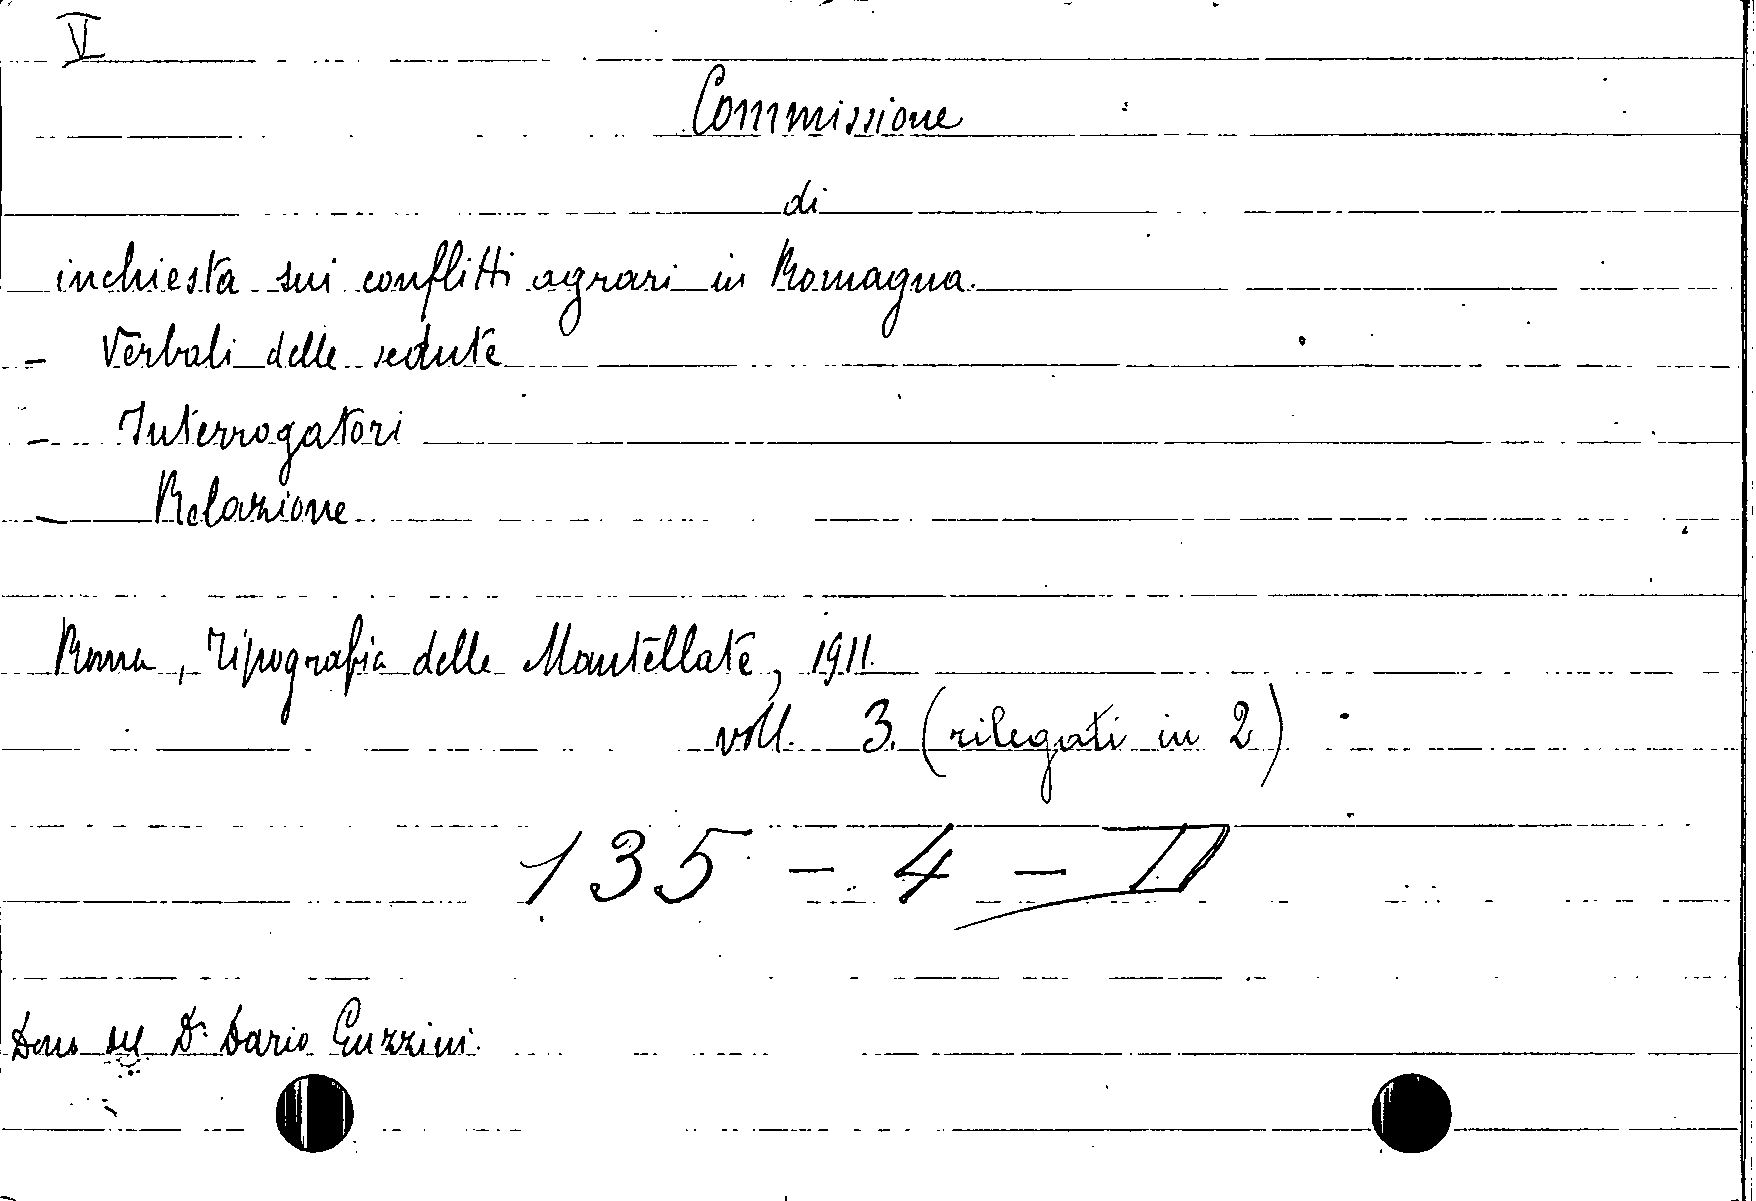 V
Commissione
di
inchiesta sui conflitti agrari in Romagna.
- Verbali delle sedute
- Interrogatori
- Relazione
Roma, Tipografia delle Mantellate, 1911.
voll. 3. (rilegati in 2)
135 - 4 - D
Dono del Dr. Dario Guzzini.